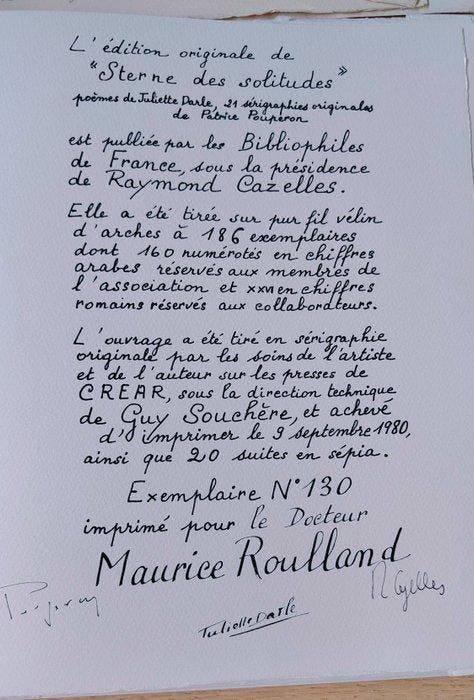 L'édition originale de
"Sterne des solitudes"
poèmes de Juliette Darle, 21 sérigraphies originales
de Patrice Pouperon
est publiée par les Bibliophiles
de France, sous la présidence
de Raymond Cazelles.
Elle a été tirée sur pur fil vélin
d'arches à 186 exemplaires
dont 160 numérotés en chiffres
arabes réservés aux membres de
l'association et XXVI en chiffres
romains réservés aux collaborateurs.
L'ouvrage a été tiré en sérigraphie
originale par les soins de l'artiste
et de l'auteur sur les presses de
CREAR, sous la direction technique
de Guy Souchère, et achevé
d'imprimer le 9 septembre 1980,
ainsi que 20 suites en sépia.
Exemplaire N°130
imprimé pour le Docteur
Maurice Roulland
Juliette Darle